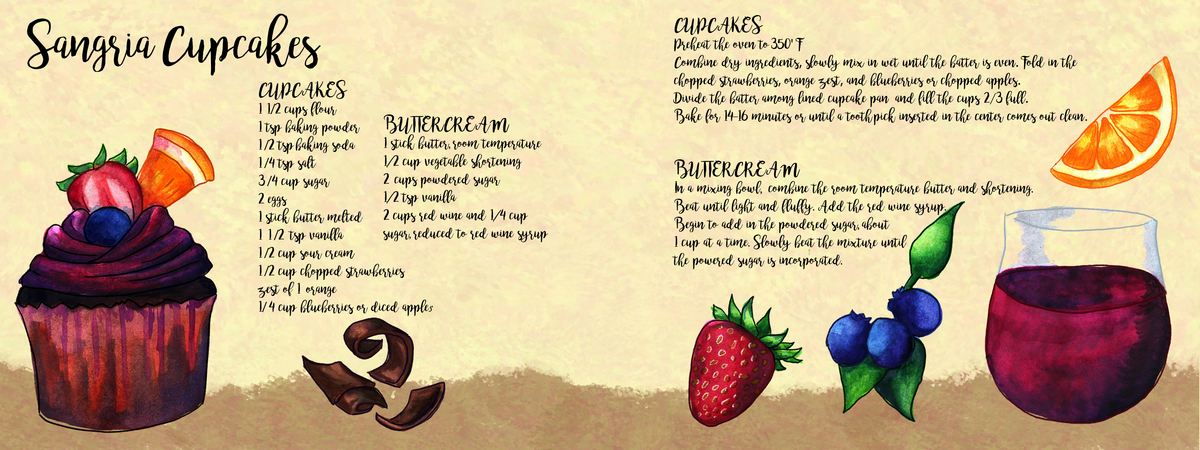 Sangria Cupcakes
CUPCAKES
1 1/2 cups flour
1 tsp baking powder
1/2 tsp baking soda
1/4 tsp salt
3/4 cup sugar
2 eggs
1 stick butter melted
1 1/2 tsp vanilla
1/2 cup sour cream
1/2 cup chopped strawberries
zest of 1 orange
1/4 cup blueberries or diced apples
BUTTERCREAM
1 stick butter, room temperature
1/2 cup vegetable shortening
2 cups powdered sugar
1/2 tsp vanilla
2 cups red wine and 1/4 cup
sugar, reduced to red wine syrup
CUPCAKES
Preheat the oven to 350° F
Combine dry ingredients, slowly mix in wet until the batter is even. Fold in the
chopped strawberries, orange zest, and blueberries or chopped apples.
Divide the batter among lined cupcake pan and fill the cups 2/3 full.
Bake for 14-16 minutes or until a toothpick inserted in the center comes out clean.
BUTTERCREAM
In a mixing bowl, combine the room temperature butter and shortening.
Beat until light and fluffy. Add the red wine syrup.
Begin to add in the powdered sugar, about
1 cup at a time. Slowly beat the mixture until
the powered sugar is incorporated.